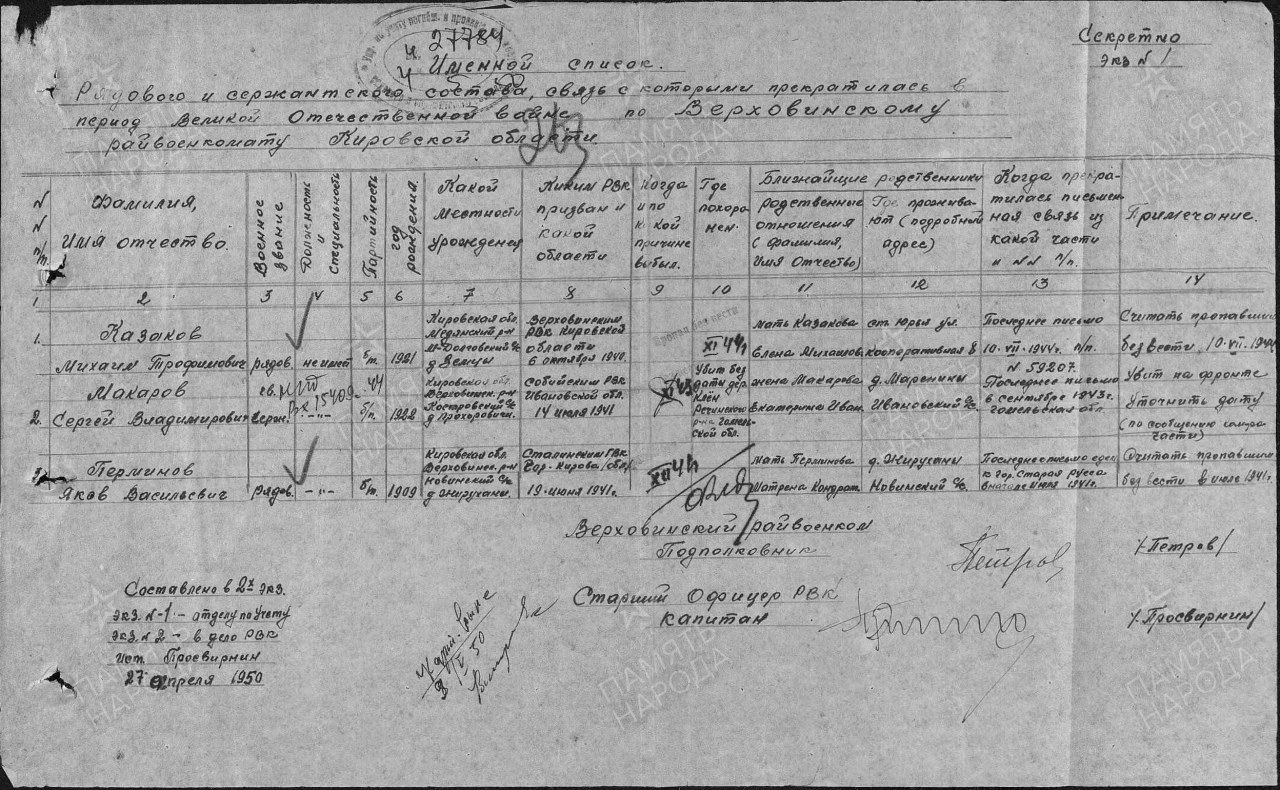 27784
Секретно
Экз N 1
Именной список.
Рядового и сержантского состава, связь с которыми прекратилась в
период Великой Отечественной войне по Верховинскому
райвоенкомату Кировской области
N N п/п.
Фамилия, Имя отчество.
Военное звание
Должность и специальность
Партийность
год рождения.
Какой местности урожденец
Каким РВК призван и какой области
Когда и по какой причине выбыл.
Где похоронен.
Ближайщие родственники
родственные отношения (фамилия, Имя Отчество)
Где проживают (подробный адрес)
Когда прекратилась письменная связь из какой части и NN п/п.
Примечание.
1 2 3 4 5 6 7 8 9 10 11 12 13 14
1.
Казаков
Михаил Трофимович
рядов.
не имет
б/п.
1921
Кировская обл.
Медянский р-н
с/с
Верховинским
РВК Кировской
области
6 октября 1940.
Пропал без вести
XI 44
мать Казакова
Елена Михайлов.
ст. Юрья ул.
Кооперативная 8
Последнее письмо
10-VII-1944г. п/п.
N 59207.
Считать пропавшим
без вести, 10-VII-1944
2.
Макаров
Сергей Владимирович
гв.
сержн.
-"-
Вх 15409-44
б/п.
1922
Кировская обл.
Верховинск. р-н
Костровский с/с
РВК
Ивановской обл.
14 июля 1941
Убит без
даты дер.
Клён
Речицкого
р-на Гомель-
ской обл.
жена Макарова
Екатерина Иван.
д. Мареники
Ивановский с/с.
Последнее письмо
6 сентября 1943г.
Гомельская обл.
Убит на фронте
Уточнить дату
(по сообщению
части)
3.
Перминов
Яков Васильевич
рядов.
-"-
б/п.
1909
Кировская обл.
Верховинск. р-н
Новинский с/с
д. Жируханы.
Сталинским РВК
гор. Кирова /обл/
19 июня 1941г.
XII 41
мать Перминова
Матрена Кондрат.
д. Жируханы
Новинский с/с.
Последнее письмо
гор. Старая Русса
в начале Июля 1941г.
Считать пропавшим
без вести в июле 1941г.
Верховинский райвоенком
Подполковник
Петров
/-Петров/
Старший Офицер РВК
капитан
/-Просвирнин/
Составлено в 2х экз.
Экз. N-1 - отделу по учету
Экз. N 2 - в дело РВК
исп. Просвирнин
27 апреля 1950
ПАМЯТЬ НАРОДА